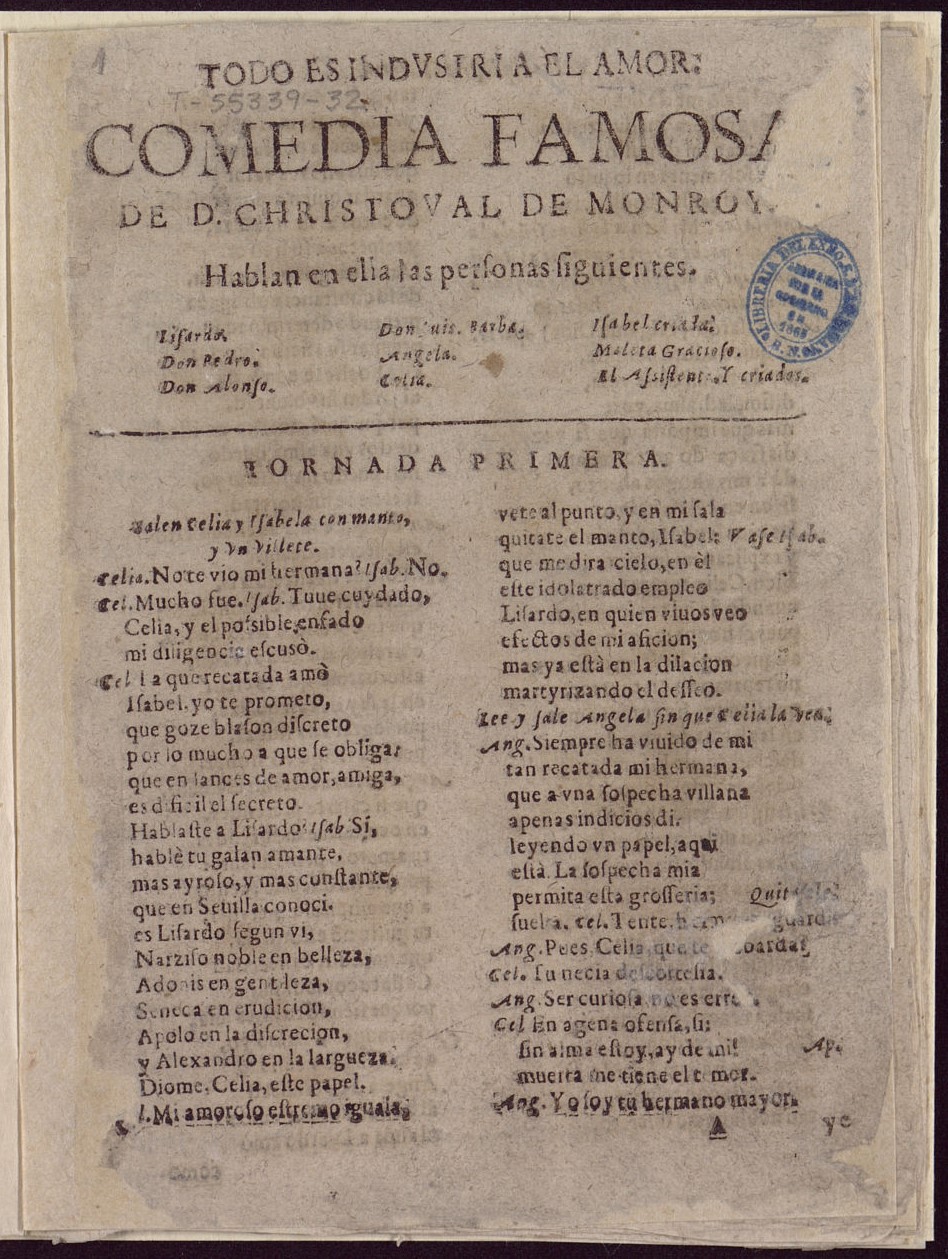 1
TODO ES INDVSTRIA EL AMOR:
T-55339-32
COMEDIA FAMOSA
DE D. CHRISTOVAL DE MONROY.
Hablan en ella las perſonas ſiguientes.
Liſardo.
Don Pedro.
Don Alonſo.
Don Luis. Barba.
Angela.
Celia.
Iſabel criada.
Maleta Gracioſo.
El Aſsiſtente. Y criados.
LIBRERIA DEL EXMO. S. D. B. N.
JORNADA PRIMERA.
Salen Celia y Iſabela con manto,
y vn villete.
Celia. No te vio mi hermana? Iſab. No.
Cel. Mucho fue. Iſab. Tuue cuydado,
Celia, y el poſsible enfado
mi diligencia eſcusò.
Cel. La que recatada amò
Iſabel, yo te prometo,
que goze blaſon diſcreto
por lo mucho a que ſe obliga:
que en lances de amor, amiga,
es dificil el ſecreto.
Hablaſte a Liſardo? Iſab Si,
hablè tu galan amante,
mas ayroſo, y mas conſtante,
que en Seuilla conoci.
es Liſardo ſegun vi,
Narziſo noble en belleza,
Adonis en gentileza,
Seneca en erudicion,
Apolo en la diſcrecion,
y Alexandro en la largueza.
Diome, Celia, eſte papel.
l. Mi amoroſo eſtremo iguala,
vete al punto, y en mi ſala
quitate el manto, Iſabel: Vaſe Iſab.
que me dira cielo, en èl
eſte idolatrado empleo
Liſardo, en quien viuos veo
efectos de mi aficion;
mas ya eſtà en la dilacion
martyrizando el deſſeo.
Lee y ſale Angela ſin que Celia la vea.
Ang. Siempre ha viuido de mi
tan recatada mi hermana,
que a vna ſoſpecha villana
apenas indicios di.
leyendo vn papel, aqui
eſtà. La ſoſpecha mia
permita eſta groſſeria; Quitaſele.
ſuelta. Cel. Tente, guard
Ang. Pues, Celia, que te
Cel. Tu necia deſcorteſia.
Ang. Ser curioſa no es
Cel En agena ofenſa, ſi:
ſin alma eſtoy, ay de mi! Ap.
muerta me tiene el temor.
Ang. Yo ſoy tu hermano mayor,
A
ye